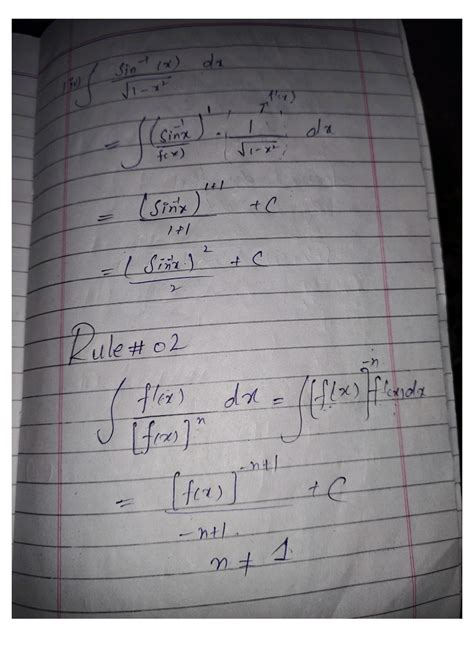 ∫ Sin⁻¹(x) / √1-x² dx
= ∫ (Sin⁻¹x)¹ · 1 / √1-x² dx
f(x) f'(x)
= (Sin⁻¹x)¹⁺¹ / 1+1 + C
= (Sin⁻¹x)² / 2 + C
Rule # 02
∫ f'(x) / [f(x)]ⁿ dx = ∫ [f(x)]⁻ⁿ f'(x) dx
= [f(x)]⁻ⁿ⁺¹ / -n+1 + C
n ≠ 1